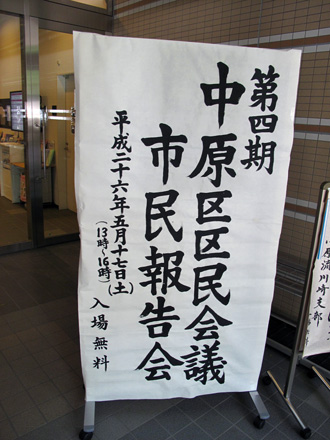 第四期
中原区区民会議
市民報告会
平成二十六年五月十七日(土)
(13時~16時)
入場無料
原流川崎支部